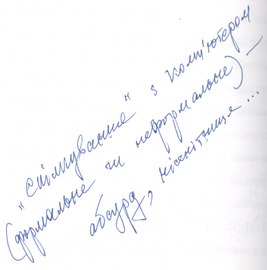 "Спілкування" з комп'ютером
(формальне чи неформальне) –
абсурд, нісенітниця...